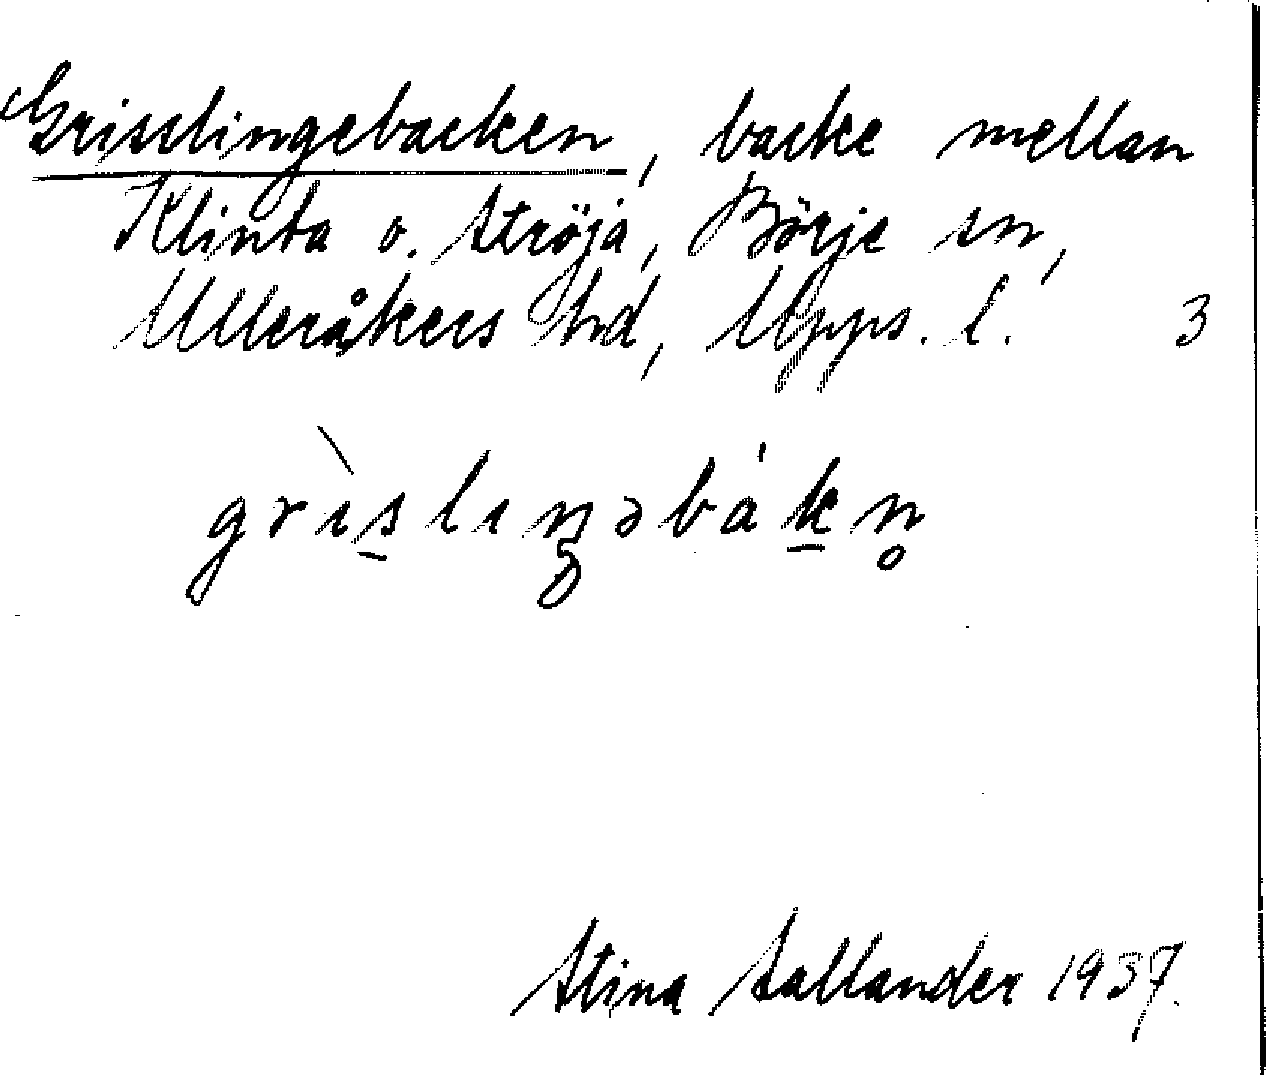 Grisslingebacken, backe mellan
Klinta o. Ströja, Börje sn,
Ulleråkers hd, Upps. l. 3
grìs̲lıŋəbák̲n̥
Stina Sallander 1937.